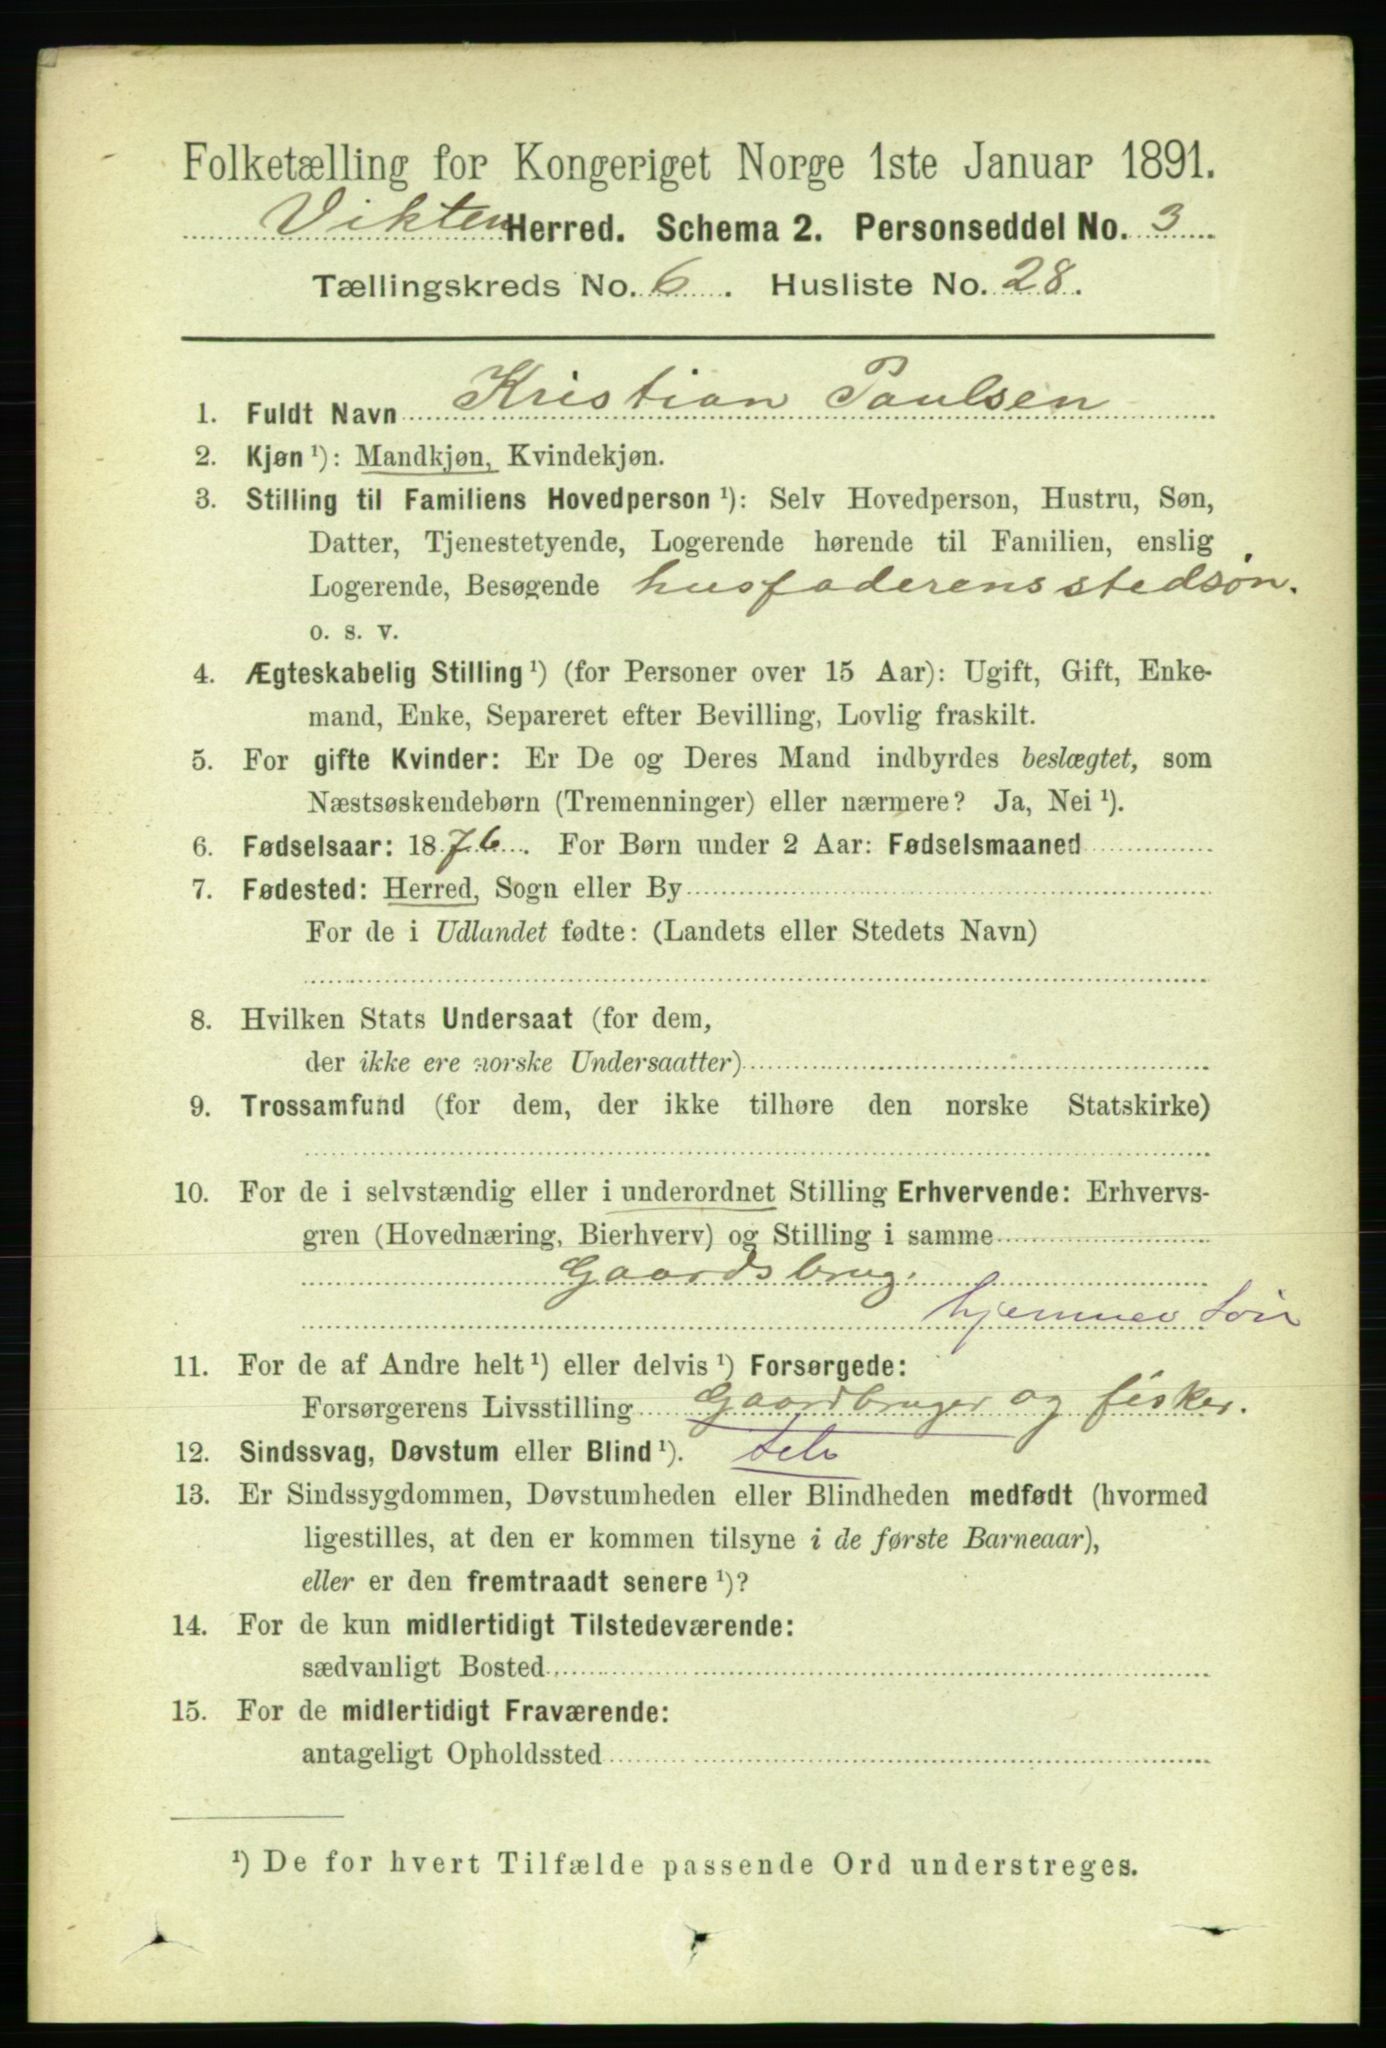 Folketælling for Kongeriget Norge 1ste Januar 1891.
Vikten Herred. Schema 2. Personseddel No. 3
Tællingskreds No. 6. Husliste No. 28.
1. Fuldt Navn Kristian Paulsen
2. Kjøn ¹): Mandkjøn, Kvindekjøn.
3. Stilling til Familiens Hovedperson ¹): Selv Hovedperson, Hustru, Søn,
Datter, Tjenestetyende, Logerende hørende til Familien, enslig
Logerende, Besøgende husfaderens stedsøn.
o. s. v.
4. Ægteskabelig Stilling ¹) (for Personer over 15 Aar): Ugift, Gift, Enke-
mand, Enke, Separeret efter Bevilling, Lovlig fraskilt.
5. For gifte Kvinder: Er De og Deres Mand indbyrdes beslægtet, som
Næstsøskendebørn (Tremenninger) eller nærmere? Ja, Nei ¹).
6. Fødselsaar: 1876. For Børn under 2 Aar: Fødselsmaaned
7. Fødested: Herred, Sogn eller By
For de i Udlandet fødte: (Landets eller Stedets Navn)
8. Hvilken Stats Undersaat (for dem,
der ikke ere norske Undersaatter)
9. Trossamfund (for dem, der ikke tilhøre den norske Statskirke)
10. For de i selvstændig eller i underordnet Stilling Erhvervende: Erhvervs-
gren (Hovednæring, Bierhverv) og Stilling i samme
Gaardsbrug.
hjemmev Søn
11. For de af Andre helt ¹) eller delvis ¹) Forsørgede:
Forsørgerens Livsstilling Gaardbruger og fisker.
12. Sindssvag, Døvstum eller Blind ¹).
13. Er Sindssygdommen, Døvstumheden eller Blindheden medfødt (hvormed
ligestilles, at den er kommen tilsyne i de første Barneaar),
eller er den fremtraadt senere ¹)?
14. For de kun midlertidigt Tilstedeværende:
sædvanligt Bosted
15. For de midlertidigt Fraværende:
antageligt Opholdssted
¹) De for hvert Tilfælde passende Ord understreges.